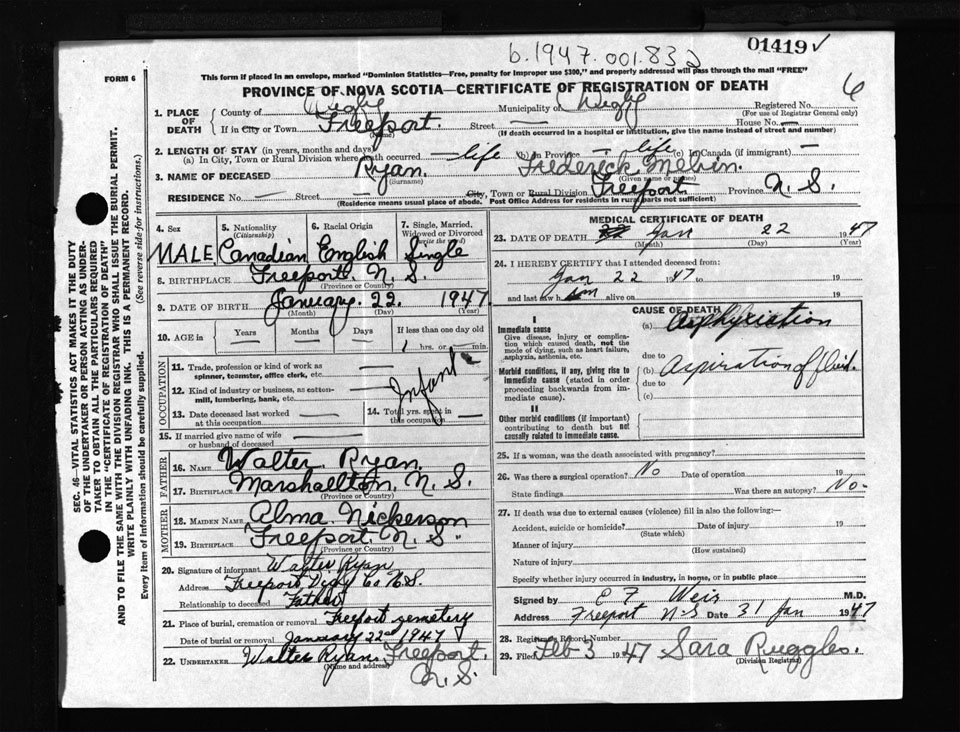 01419 ✓
b.1947.001.832
FORM 6
This form if placed in an envelope, marked "Dominion Statistics—Free, penalty for improper use $300," and properly addressed will pass through the mail "FREE"
PROVINCE OF NOVA SCOTIA—CERTIFICATE OF REGISTRATION OF DEATH
6
1. PLACE OF DEATH
County of Digby Municipality of Digby Registered No.
(For use of Registrar General only)
If in City or Town Freeport. Street — House No. —
(Name) (If death occurred in a hospital or institution, give the name instead of street and number)
2. LENGTH OF STAY (in years, months and days)
(a) In City, Town or Rural Division where death occurred — life (b) In Province — life (c) In Canada (if immigrant) —
3. NAME OF DECEASED Ryan. Frederick Melvin.
(Surname) (Given name or names)
RESIDENCE No. — Street — City, Town or Rural Division Freeport Province N. S.
(Residence means usual place of abode. Post Office Address for residents in rural parts not sufficient)
4. Sex MALE
5. Nationality (Citizenship) Canadian
6. Racial Origin English
7. Single, Married, Widowed or Divorced (write the word) Single
8. BIRTHPLACE Freeport N. S.
(Province or Country)
9. DATE OF BIRTH January. 22. 1947.
(Month) (Day) (Year)
10. AGE in Years Months Days If less than one day old
1 hrs. or min.
OCCUPATION
11. Trade, profession or kind of work as spinner, teamster, office clerk, etc. —
12. Kind of industry or business, as cotton-mill, lumbering, bank, etc. —
Infant
13. Date deceased last worked at this occupation —
14. Total yrs. spent in this occupation —
15. If married give name of wife or husband of deceased —
FATHER
16. NAME Walter Ryan.
17. BIRTHPLACE Marshalltown. N. S.
(Province or Country)
MOTHER
18. MAIDEN NAME Alma Nickerson
19. BIRTHPLACE Freeport N. S.
(Province or Country)
20. Signature of informant Walter Ryan
Address Freeport Digby Co. N.S.
Relationship to deceased Father
21. Place of burial, cremation or removal Freeport cemetery
Date of burial or removal January 22nd 1947
22. UNDERTAKER Walter Ryan. Freeport. N. S.
(Name and address)
MEDICAL CERTIFICATE OF DEATH
23. DATE OF DEATH Jan 22 1947
(Month) (Day) (Year)
24. I HEREBY CERTIFY that I attended deceased from:
Jan 22 1947 to 19
and last saw h im alive on 19
CAUSE OF DEATH
I
Immediate cause
Give disease, injury or complication which caused death, not the mode of dying, such as heart failure, asphyxia, asthenia, etc.
(a) Asphyxiation
due to
Morbid conditions, if any, giving rise to immediate cause (stated in order proceeding backwards from immediate cause).
(b) Aspiration of fluid.
due to
(c)
II
Other morbid conditions (if important) contributing to death but not causally related to immediate cause.
25. If a woman, was the death associated with pregnancy?
26. Was there a surgical operation? No Date of operation 19
State findings Was there an autopsy? No-
27. If death was due to external causes (violence) fill in also the following:—
Accident, suicide or homicide? Date of injury 19
(State which)
Manner of injury
(How sustained)
Nature of injury
Specify whether injury occurred in industry, in home, or in public place
Signed by E F Weir M.D.
Address Freeport N-S Date 31 Jan 1947
28. Registrar's Record Number
29. Filed Feb 3 1947 Sara Ruggles.
(Division Registrar)
SEC. 46—VITAL STATISTICS ACT MAKES IT THE DUTY OF THE UNDERTAKER OR PERSON ACTING AS UNDERTAKER TO OBTAIN ALL THE PARTICULARS REQUIRED IN THE "CERTIFICATE OF REGISTRATION OF DEATH" AND TO FILE THE SAME WITH THE DIVISION REGISTRAR WHO SHALL ISSUE THE BURIAL PERMIT.
WRITE PLAINLY WITH UNFADING INK. THIS IS A PERMANENT RECORD.
Every item of information should be carefully supplied. (See reverse side for instructions.)